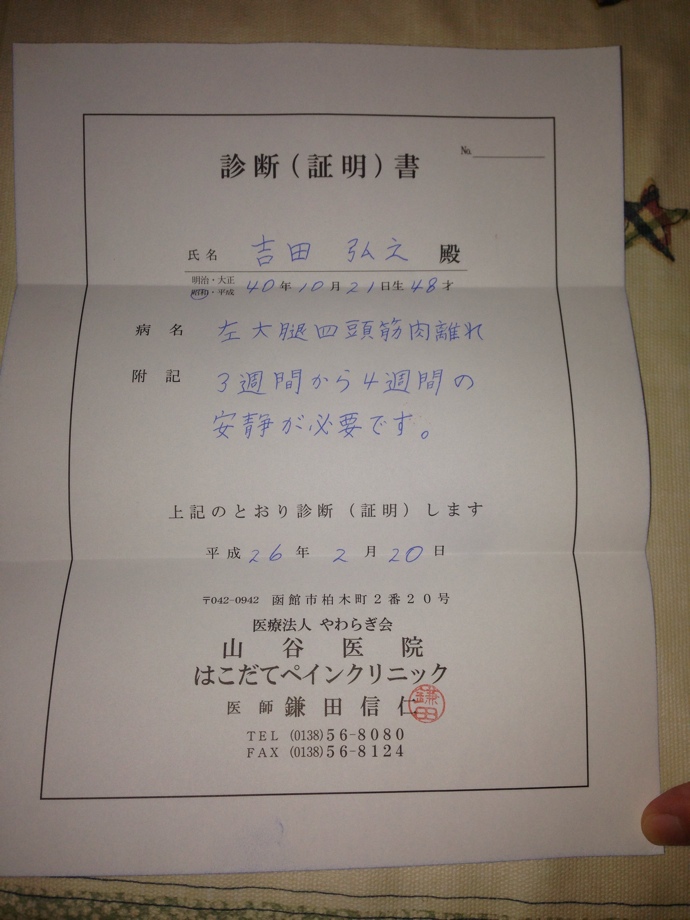 診断(証明)書
No.
氏名 吉田 弘之 殿
明治・大正
昭和・平成 40年10月21日生48才
病名 左大腿四頭筋肉離れ
附記 3週間から4週間の
安静が必要です。
上記のとおり診断(証明)します
平成26年2月20日
〒042-0942 函館市柏木町2番20号
医療法人 やわらぎ会
山谷医院
はこだてペインクリニック
医師 鎌田信仁
鎌田
TEL (0138)56-8080
FAX (0138)56-8124